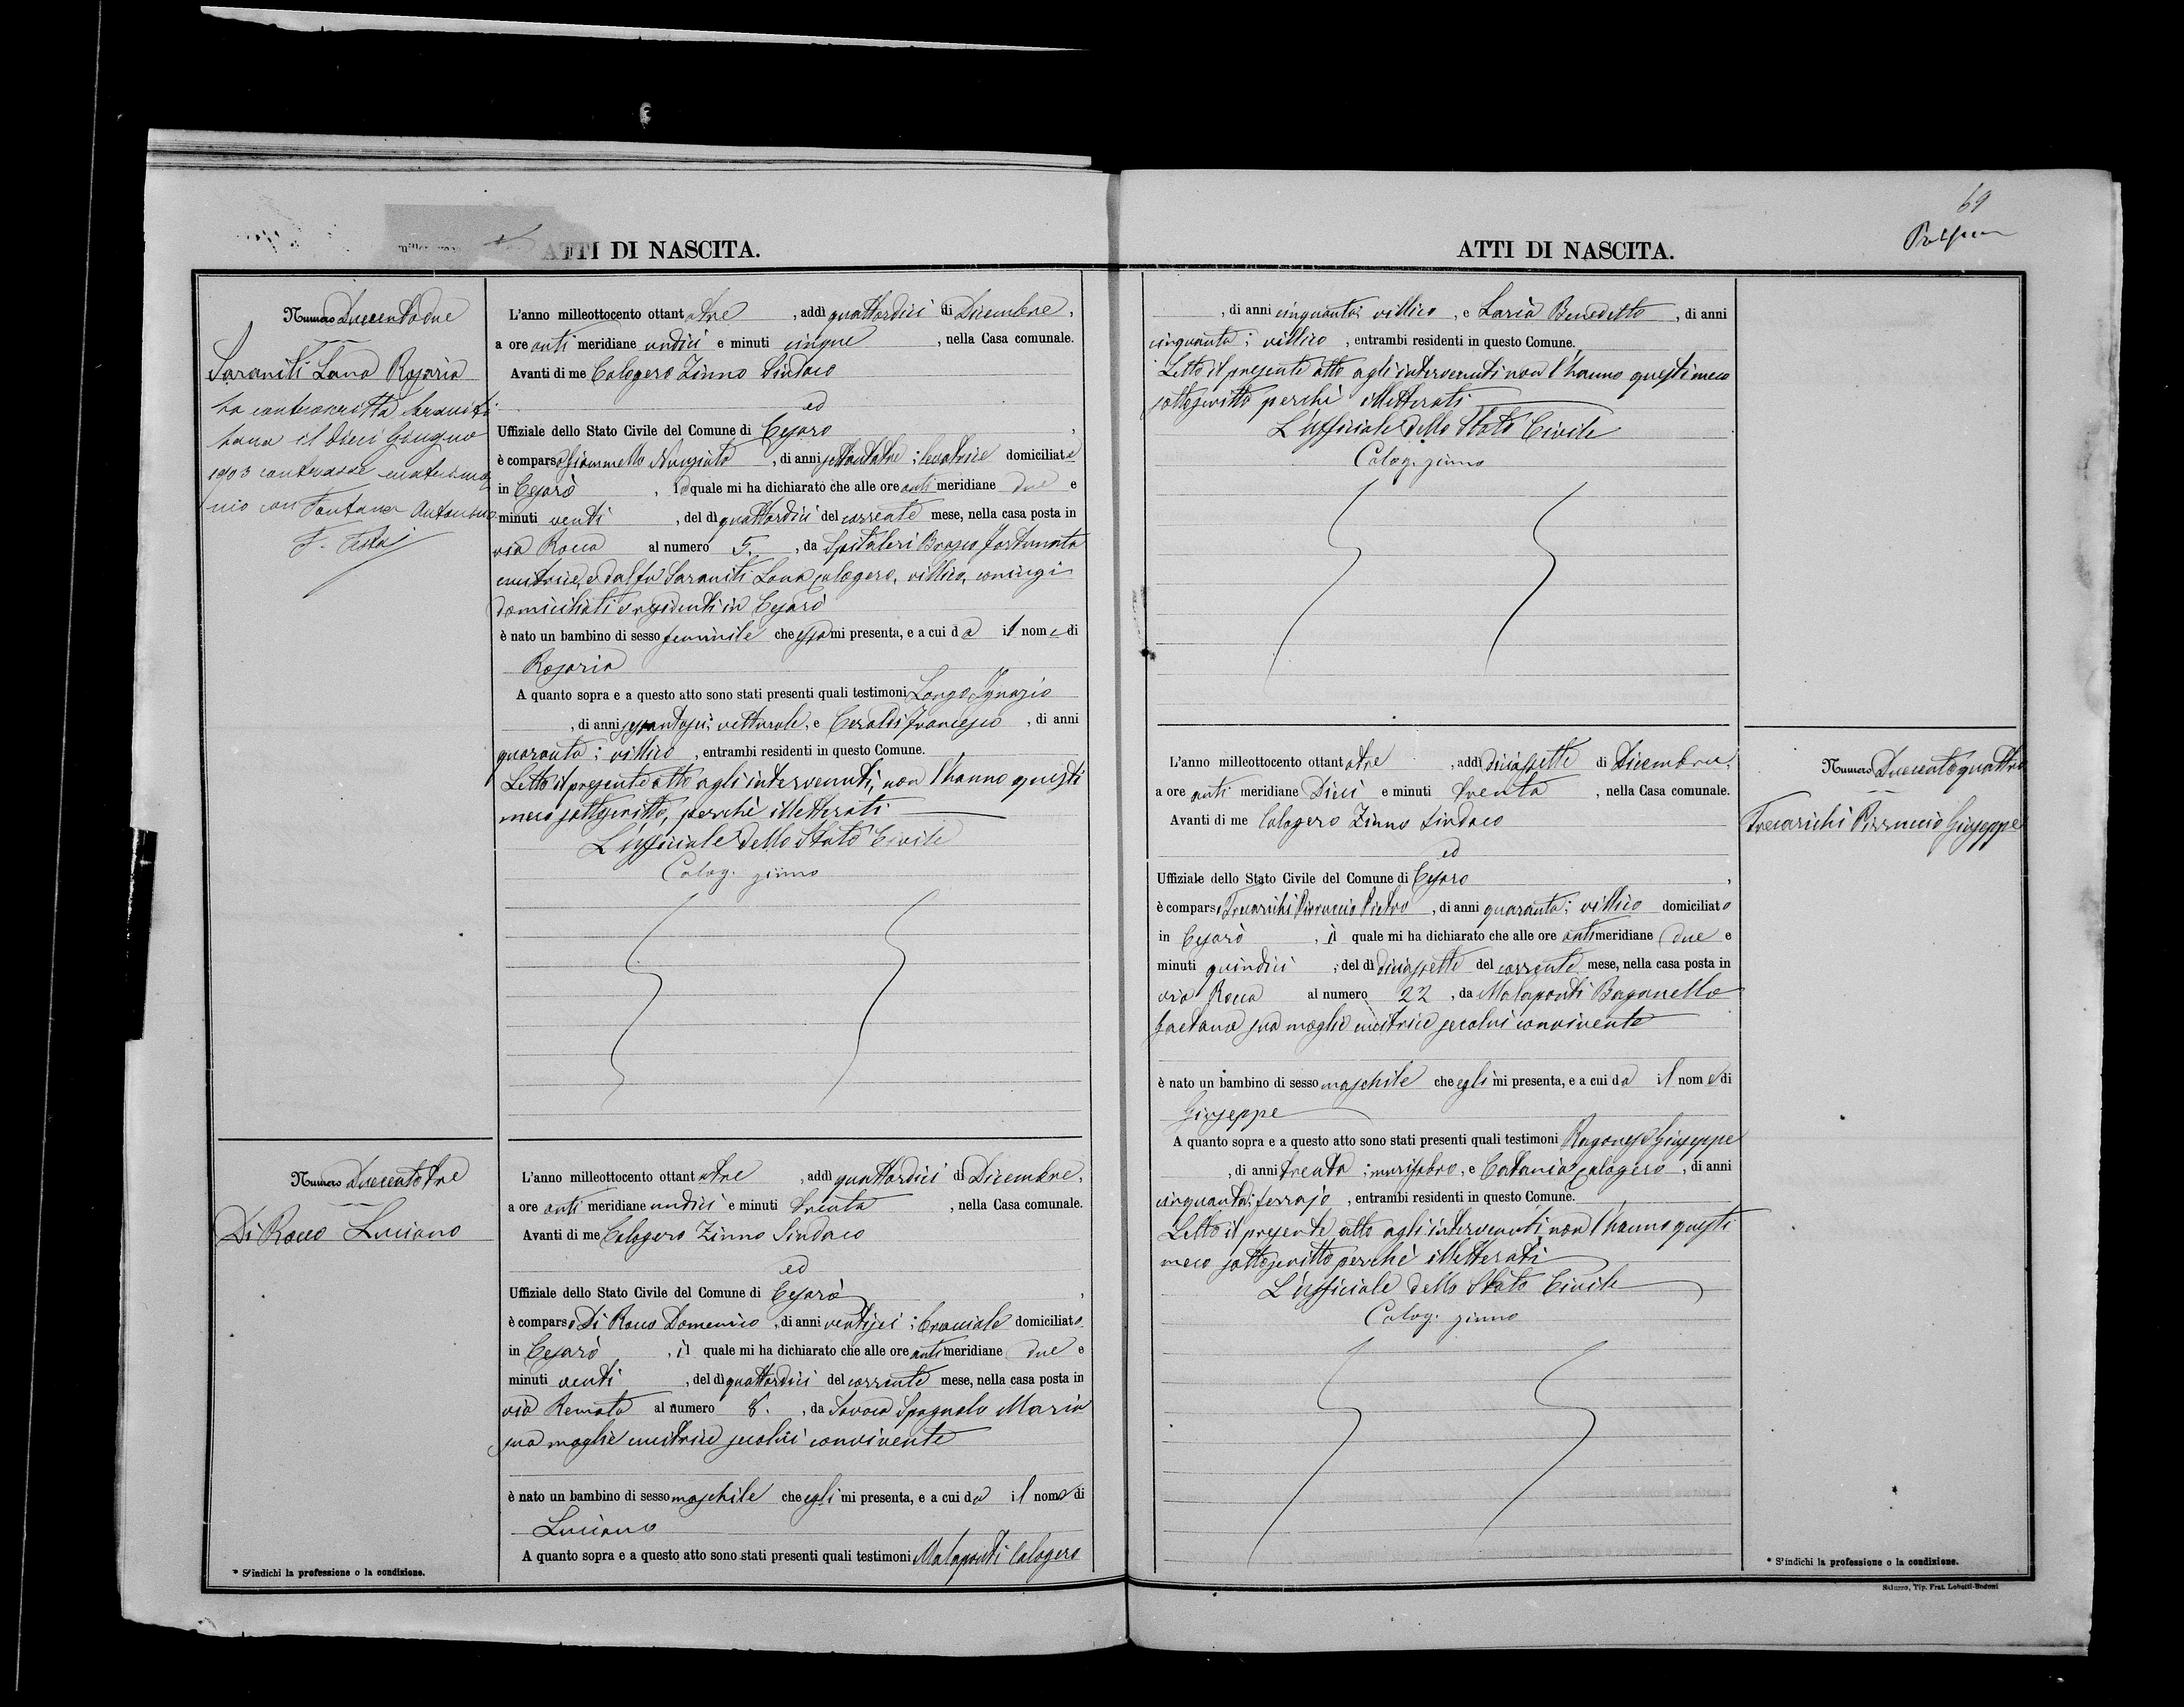 ATTI DI NASCITA.
Numero Duecentodue
Saraniti Lana Rosaria
La controscritta Saraniti
Lana il dieci Giugno
1903 contrasse matrimo
nio con Fontana Antonino
L'anno milleottocento ottantatre, addì quattordici di Dicembre,
a ore anti meridiane undici e minuti cinque, nella Casa comunale.
Avanti di me Calogero Zinno Sindaco
ed
Uffiziale dello Stato Civile del Comune di Cesarò,
è comparsa Nunziata, di anni settantatre; levatrice domiciliata
in Cesarò, la quale mi ha dichiarato che alle ore anti meridiane due e
minuti venti, del dì quattordici del corrente mese, nella casa posta in
via Rocca al numero 5., da Spitaleri Fortunata
cucitrice, e dal fu Saraniti Lana Calogero, villico, coniugi
domiciliati e residenti in Cesarò
è nato un bambino di sesso feminile che essa mi presenta, e a cui dà il nome di
Rosaria
A quanto sopra e a questo atto sono stati presenti quali testimoni Longo Ignazio
, di anni vetturale, e Ceraldi Francesco, di anni
quaranta; villico, entrambi residenti in questo Comune.
Letto il presente atto agli intervenuti, non l'hanno questi
meco sottoscritto, perchè illetterati
L'ufficiale dello Stato Civile
Calog. Zinno
Numero Duecentotre
Di Rocco Luciano
L'anno milleottocento ottantatre, addì quattordici di Dicembre,
a ore anti meridiane undici e minuti trenta, nella Casa comunale.
Avanti di me Calogero Zinno Sindaco
ed
Uffiziale dello Stato Civile del Comune di Cesarò,
è comparso Di Rocco Domenico, di anni ventisei; bracciale domiciliato
in Cesarò, il quale mi ha dichiarato che alle ore antimeridiane due e
minuti venti, del dì quattordici del corrente mese, nella casa posta in
via Remata al numero 8., da Savoca Spagnolo Maria
sua moglie cucitrice secolui convivente
è nato un bambino di sesso maschile che egli mi presenta, e a cui dà il nome di
Luciano
A quanto sopra e a questo atto sono stati presenti quali testimoni Malaponti Calogero
* S'indichi la professione o la condizione.
69
ATTI DI NASCITA.
, di anni cinquanta; villico, e Laria Benedetto, di anni
cinquanta; villico, entrambi residenti in questo Comune.
Letto il presente atto agli intervenuti non l'hanno questi meco
sottoscritto perchè illetterati
L'ufficiale dello Stato Civile
Calog. Zinno
Numero Duecentoquattro
Trecarichi Pirruccio Giuseppe
L'anno milleottocento ottantatre, addì diciassette di Dicembre,
a ore anti meridiane dieci e minuti trenta, nella Casa comunale.
Avanti di me Calogero Zinno Sindaco
ed
Uffiziale dello Stato Civile del Comune di Cesarò,
è comparso Trecarichi Pirruccio Pietro, di anni quaranta; villico domiciliato
in Cesarò, il quale mi ha dichiarato che alle ore antimeridiane due e
minuti quindici, del dì diciassette del corrente mese, nella casa posta in
via Rocca al numero 22, da Malaponti Baganello
Gaetana sua moglie cucitrice secolui convivente
è nato un bambino di sesso maschile che egli mi presenta, e a cui dà il nome di
Giuseppe
A quanto sopra e a questo atto sono stati presenti quali testimoni Ragonese Giuseppe
, di anni trenta; murifabro, e Catania Calogero, di anni
cinquanta; ferrajo, entrambi residenti in questo Comune.
Letto il presente atto agli intervenuti, non l'hanno questi
meco sottoscritto perchè illetterati
L'ufficiale dello Stato Civile
Calog. Zinno
* S'indichi la professione o la condizione.
Saluzzo, Tip. Frat. Lobetti-Bodoni